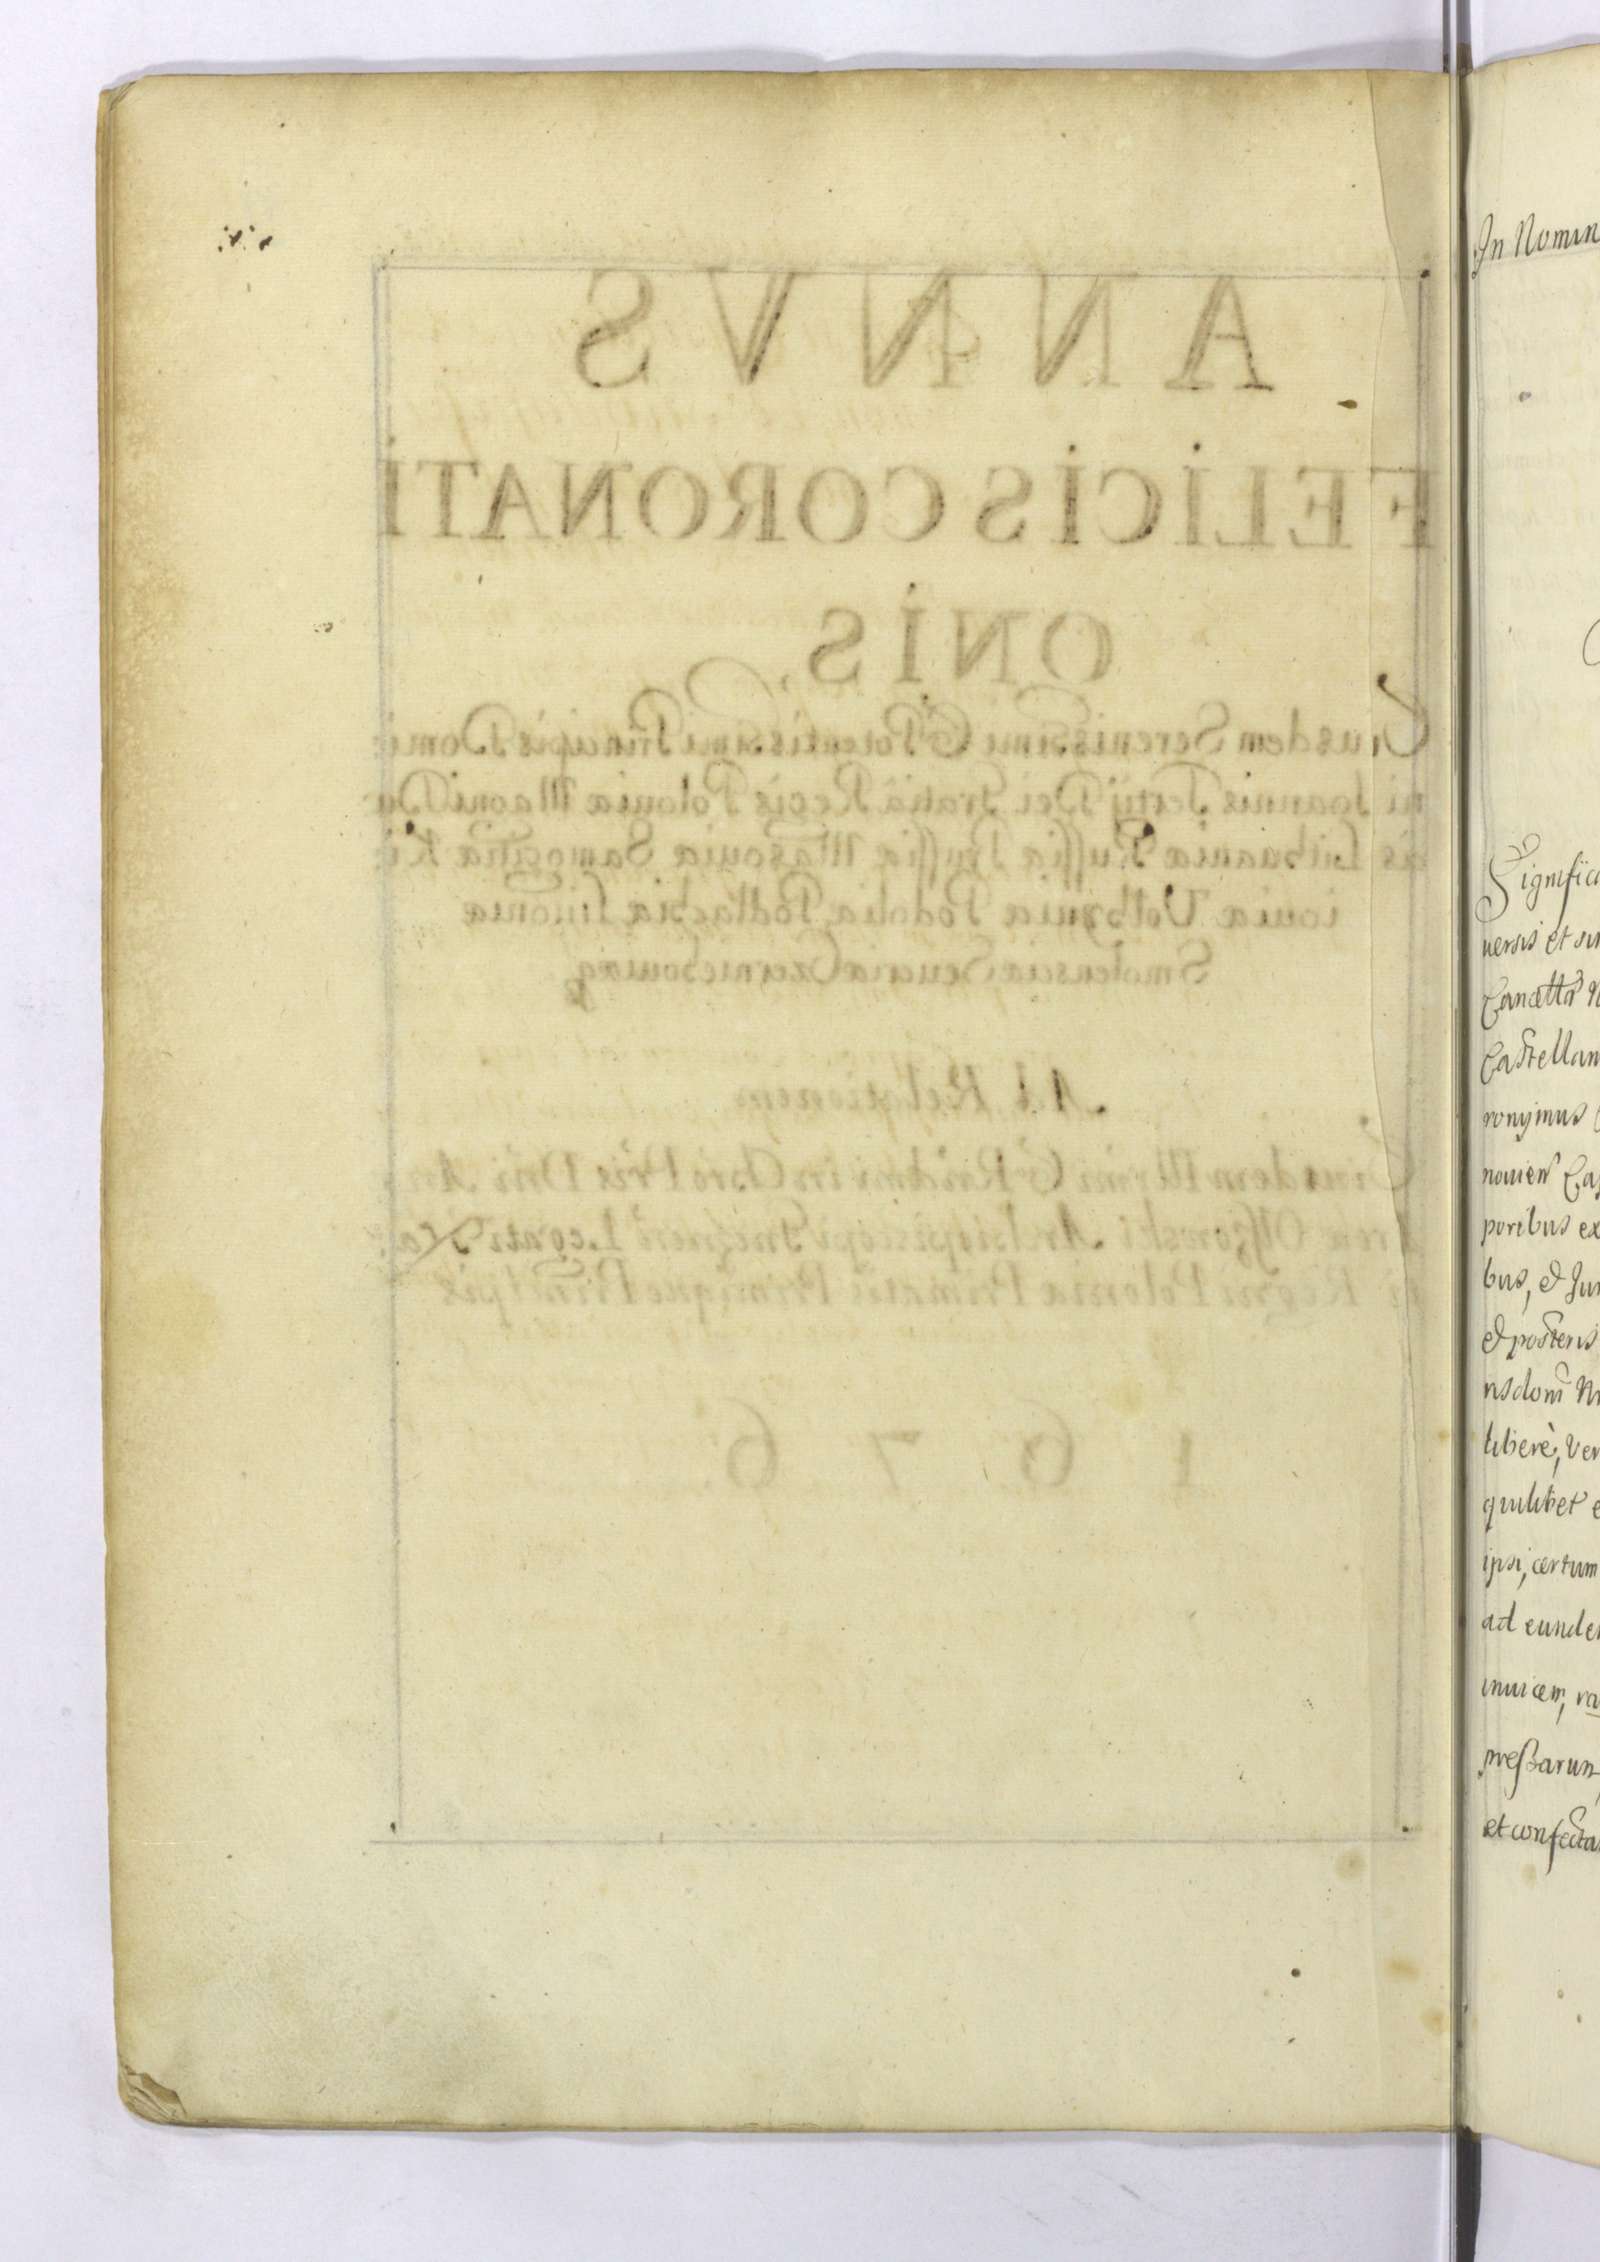 ANNVS
FELICIS CORONATI
ONIS,
Eiusdem Serenissimi & Potentissimi Principis Domi
ni Joannis Tertij Dei Gratiâ Regis Poloniæ Magni Du
cis Lithuaniæ Russiæ Prussiæ Masoviæ Samogitiæ Ki
iouiæ Volhyniæ Podoliæ Podlachiæ Liuoniæ
Smolensciæ Seueriæ Czerniechouiæq
Ad Relationem
Eiusdem Illrmi & Rndmi in Chro Pris Dni An
dreæ Olszowski Archiepiscopi Gnesnen Legati
Regni Poloniæ Primatis Primique Principis
1 6 7 6
In Nomin
Significa
uersis et sin
Cancell
Castellan
ronymus
nouien Cas
poribus ex
bus, & Jur
& posteris
nsdom
liberè, Ver
quilibet e
ipsi, certum
ad eunde
inuicem, ra
meßarum
et confecta